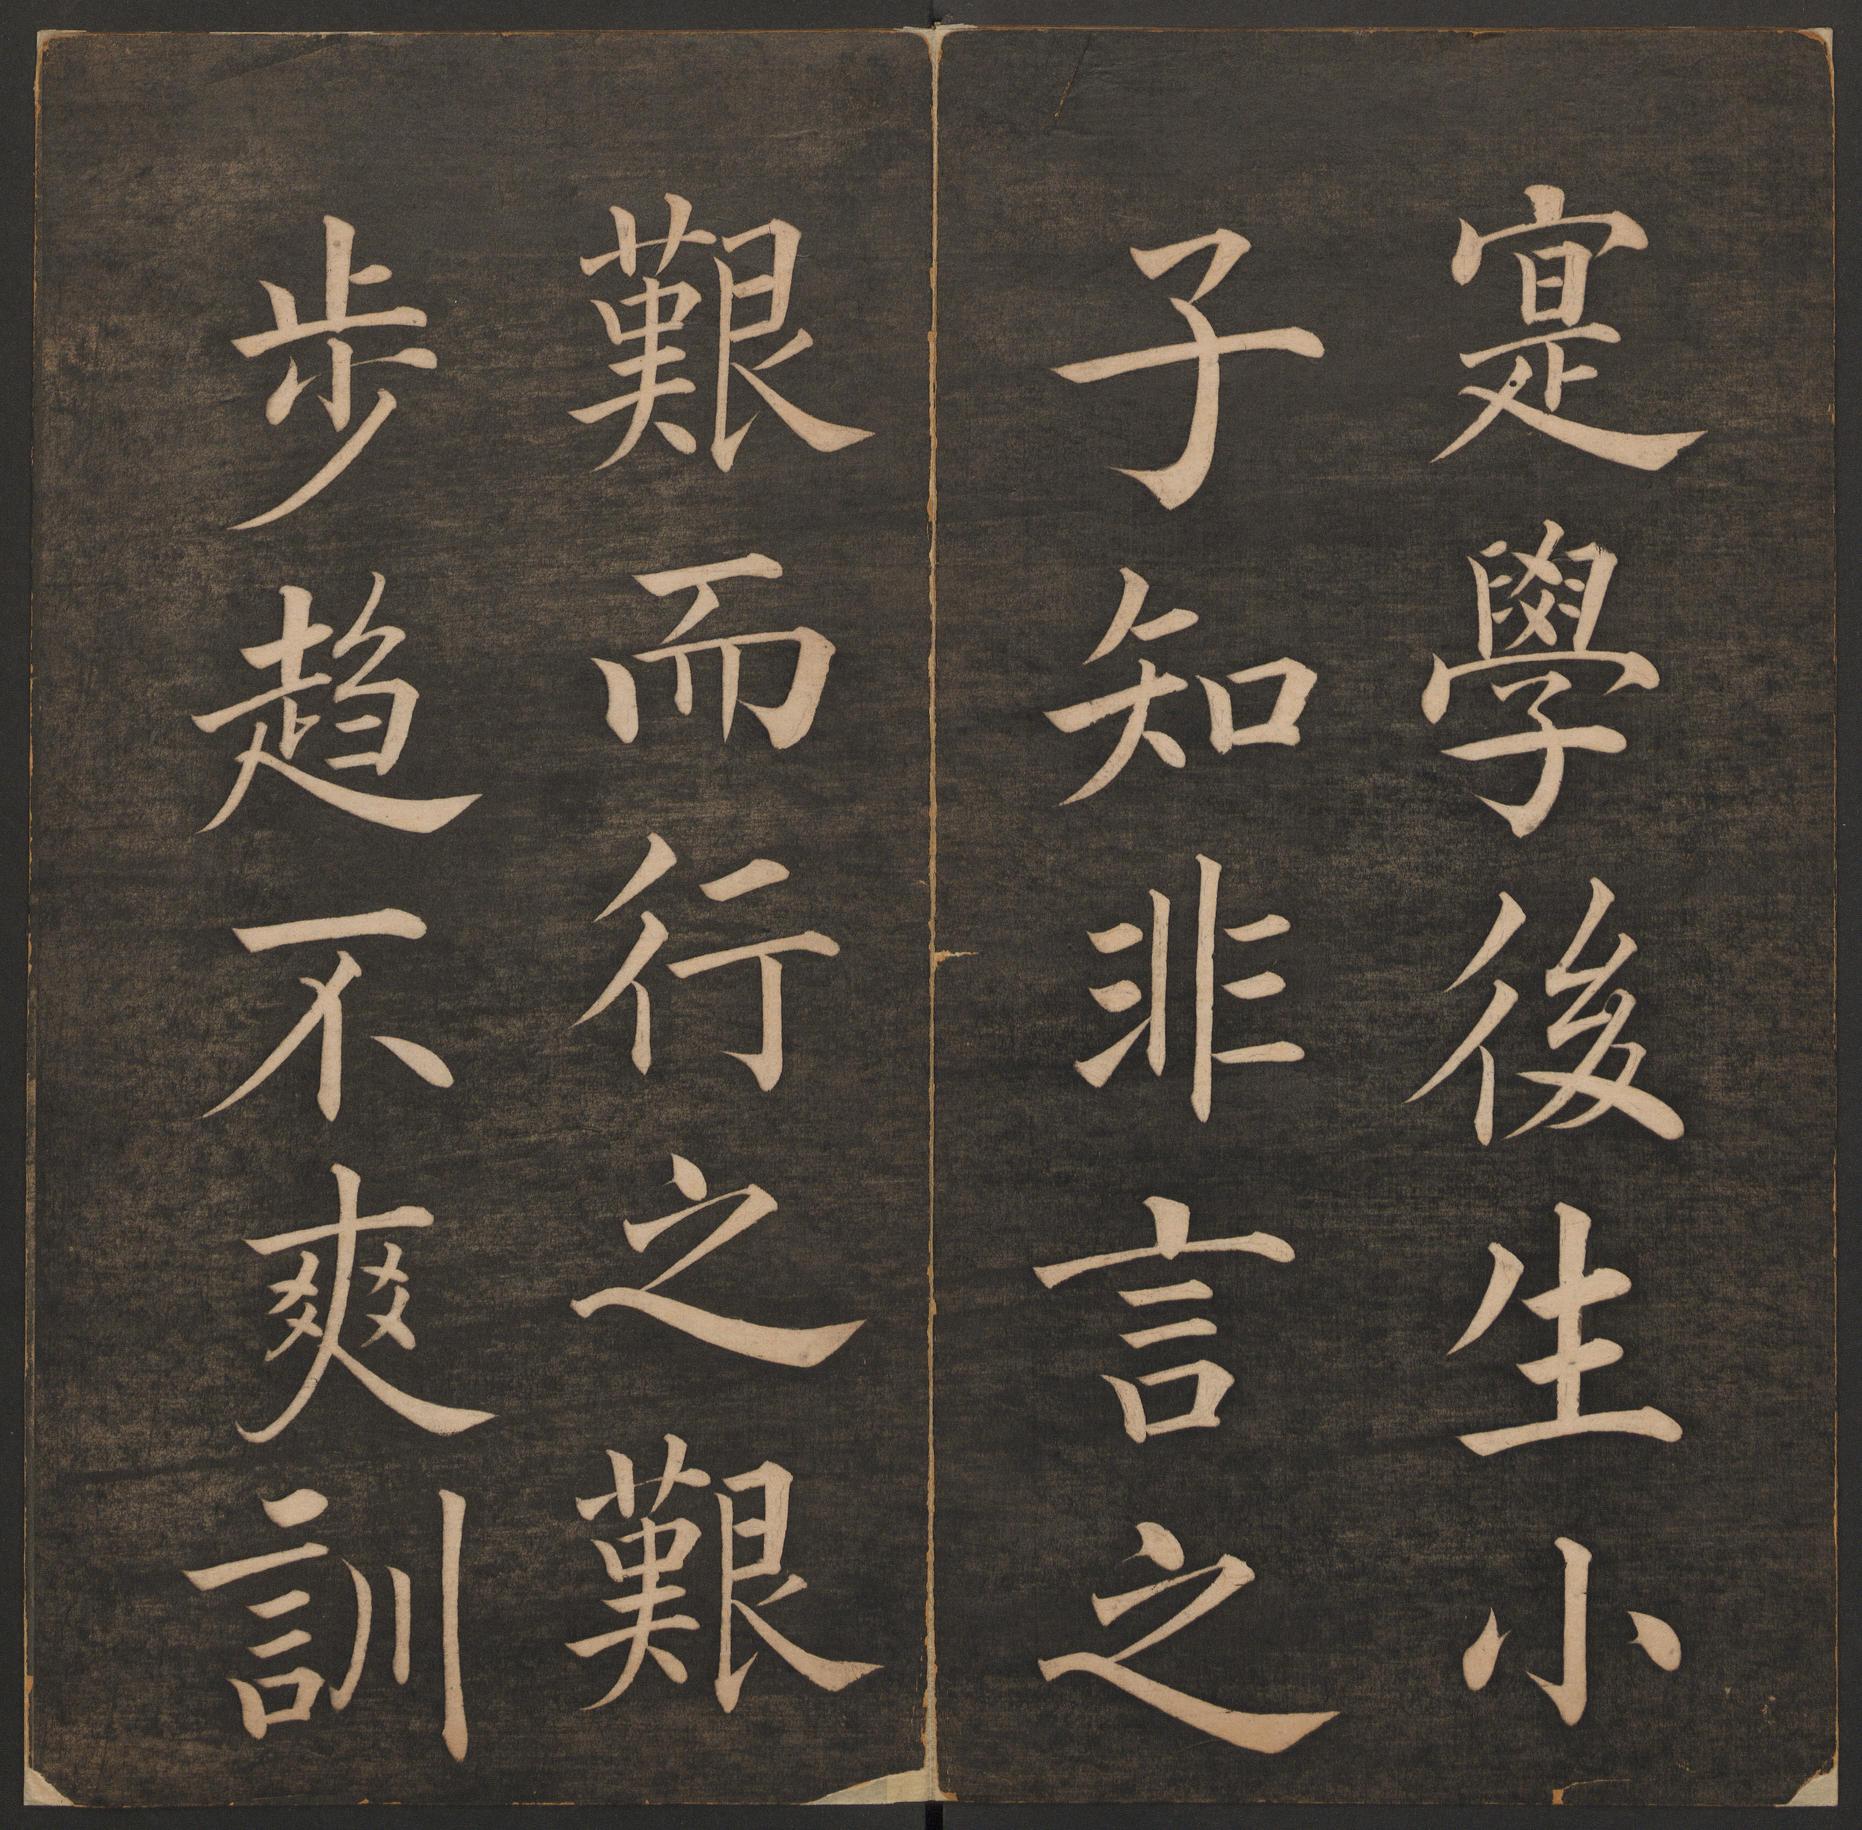 寔學後生小
子知非言之
艱而行之艱
步趨不爽訓